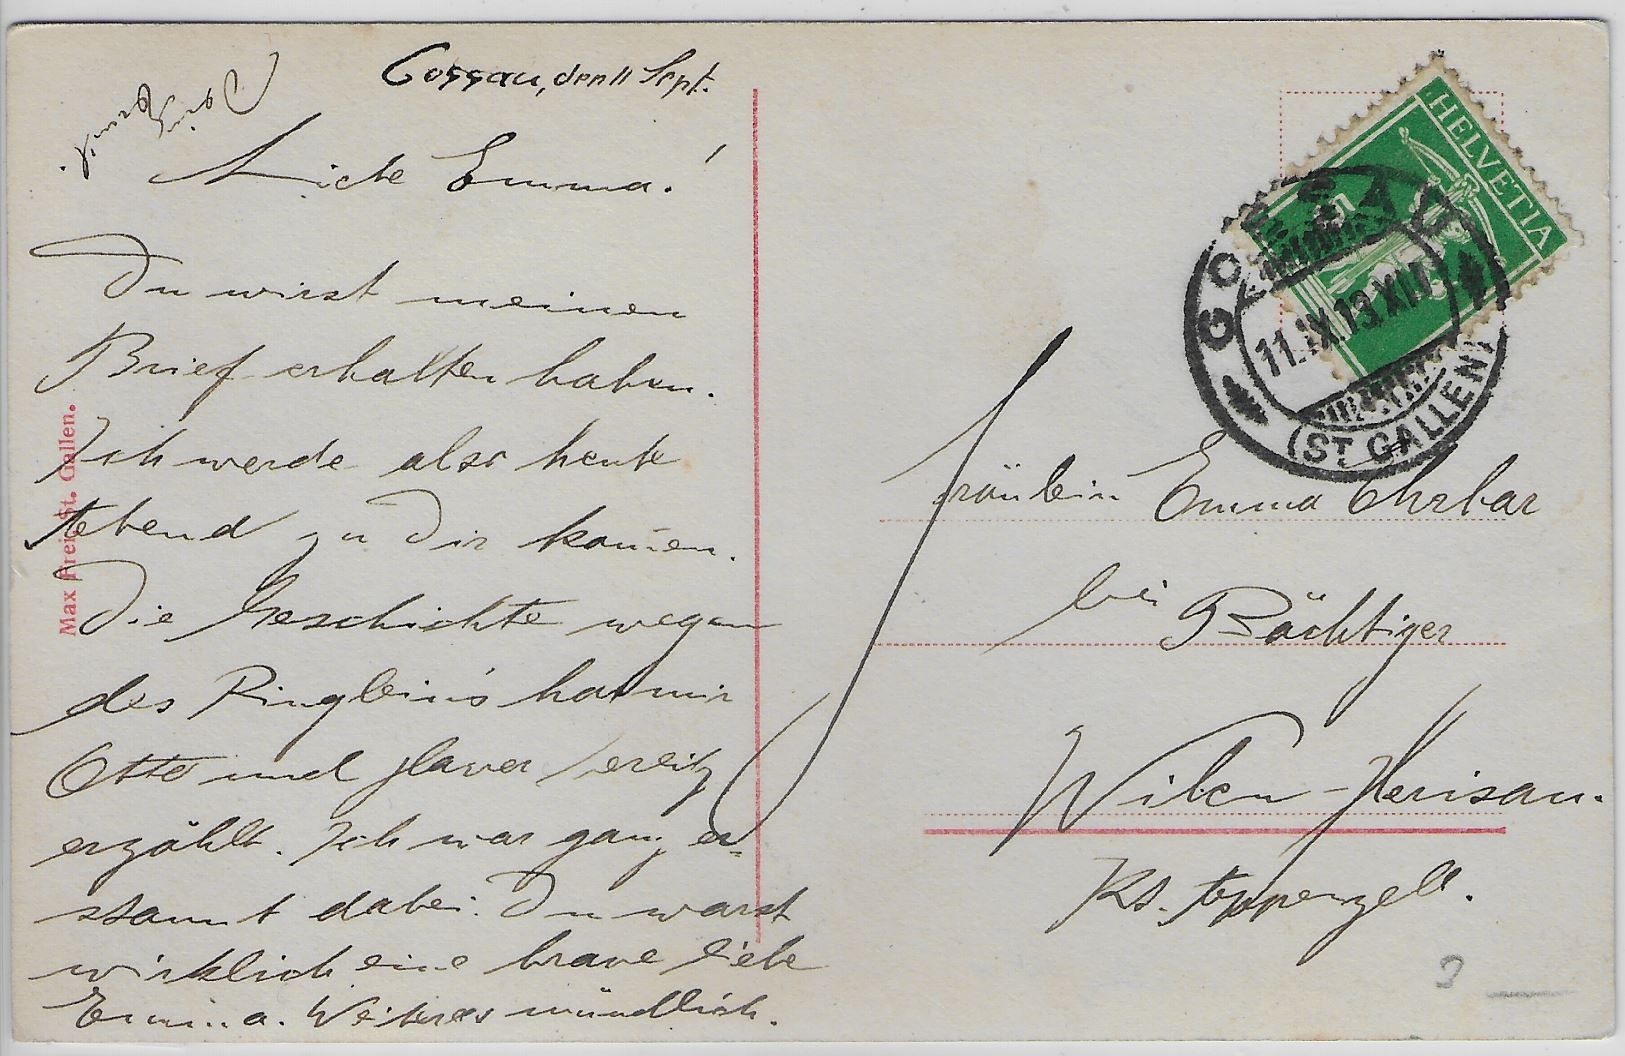 Gossau, den 11 Sept.
Liebe Emma!
Du wirst meinen
Brief erhalten haben.
Ich werde also heute
Abend zu Dir kom̄en.
Die Geschichte wegen
des Ringlein's hat mir
Otto und Xaver bereitz
erzählt. Ich war ganz er-
staunt dabei. Du warst
wirklich eine brave liebe
Emma. Weiteres mündlich.
Dein
Max Frei, St. Gallen.
HELVETIA
GOSSAU
11.IX.13.XII
(ST GALLEN)
Fräulein Emma Ehrbar
bei Bächtiger
Wilen-Herisau.
Kt. Appenzell.